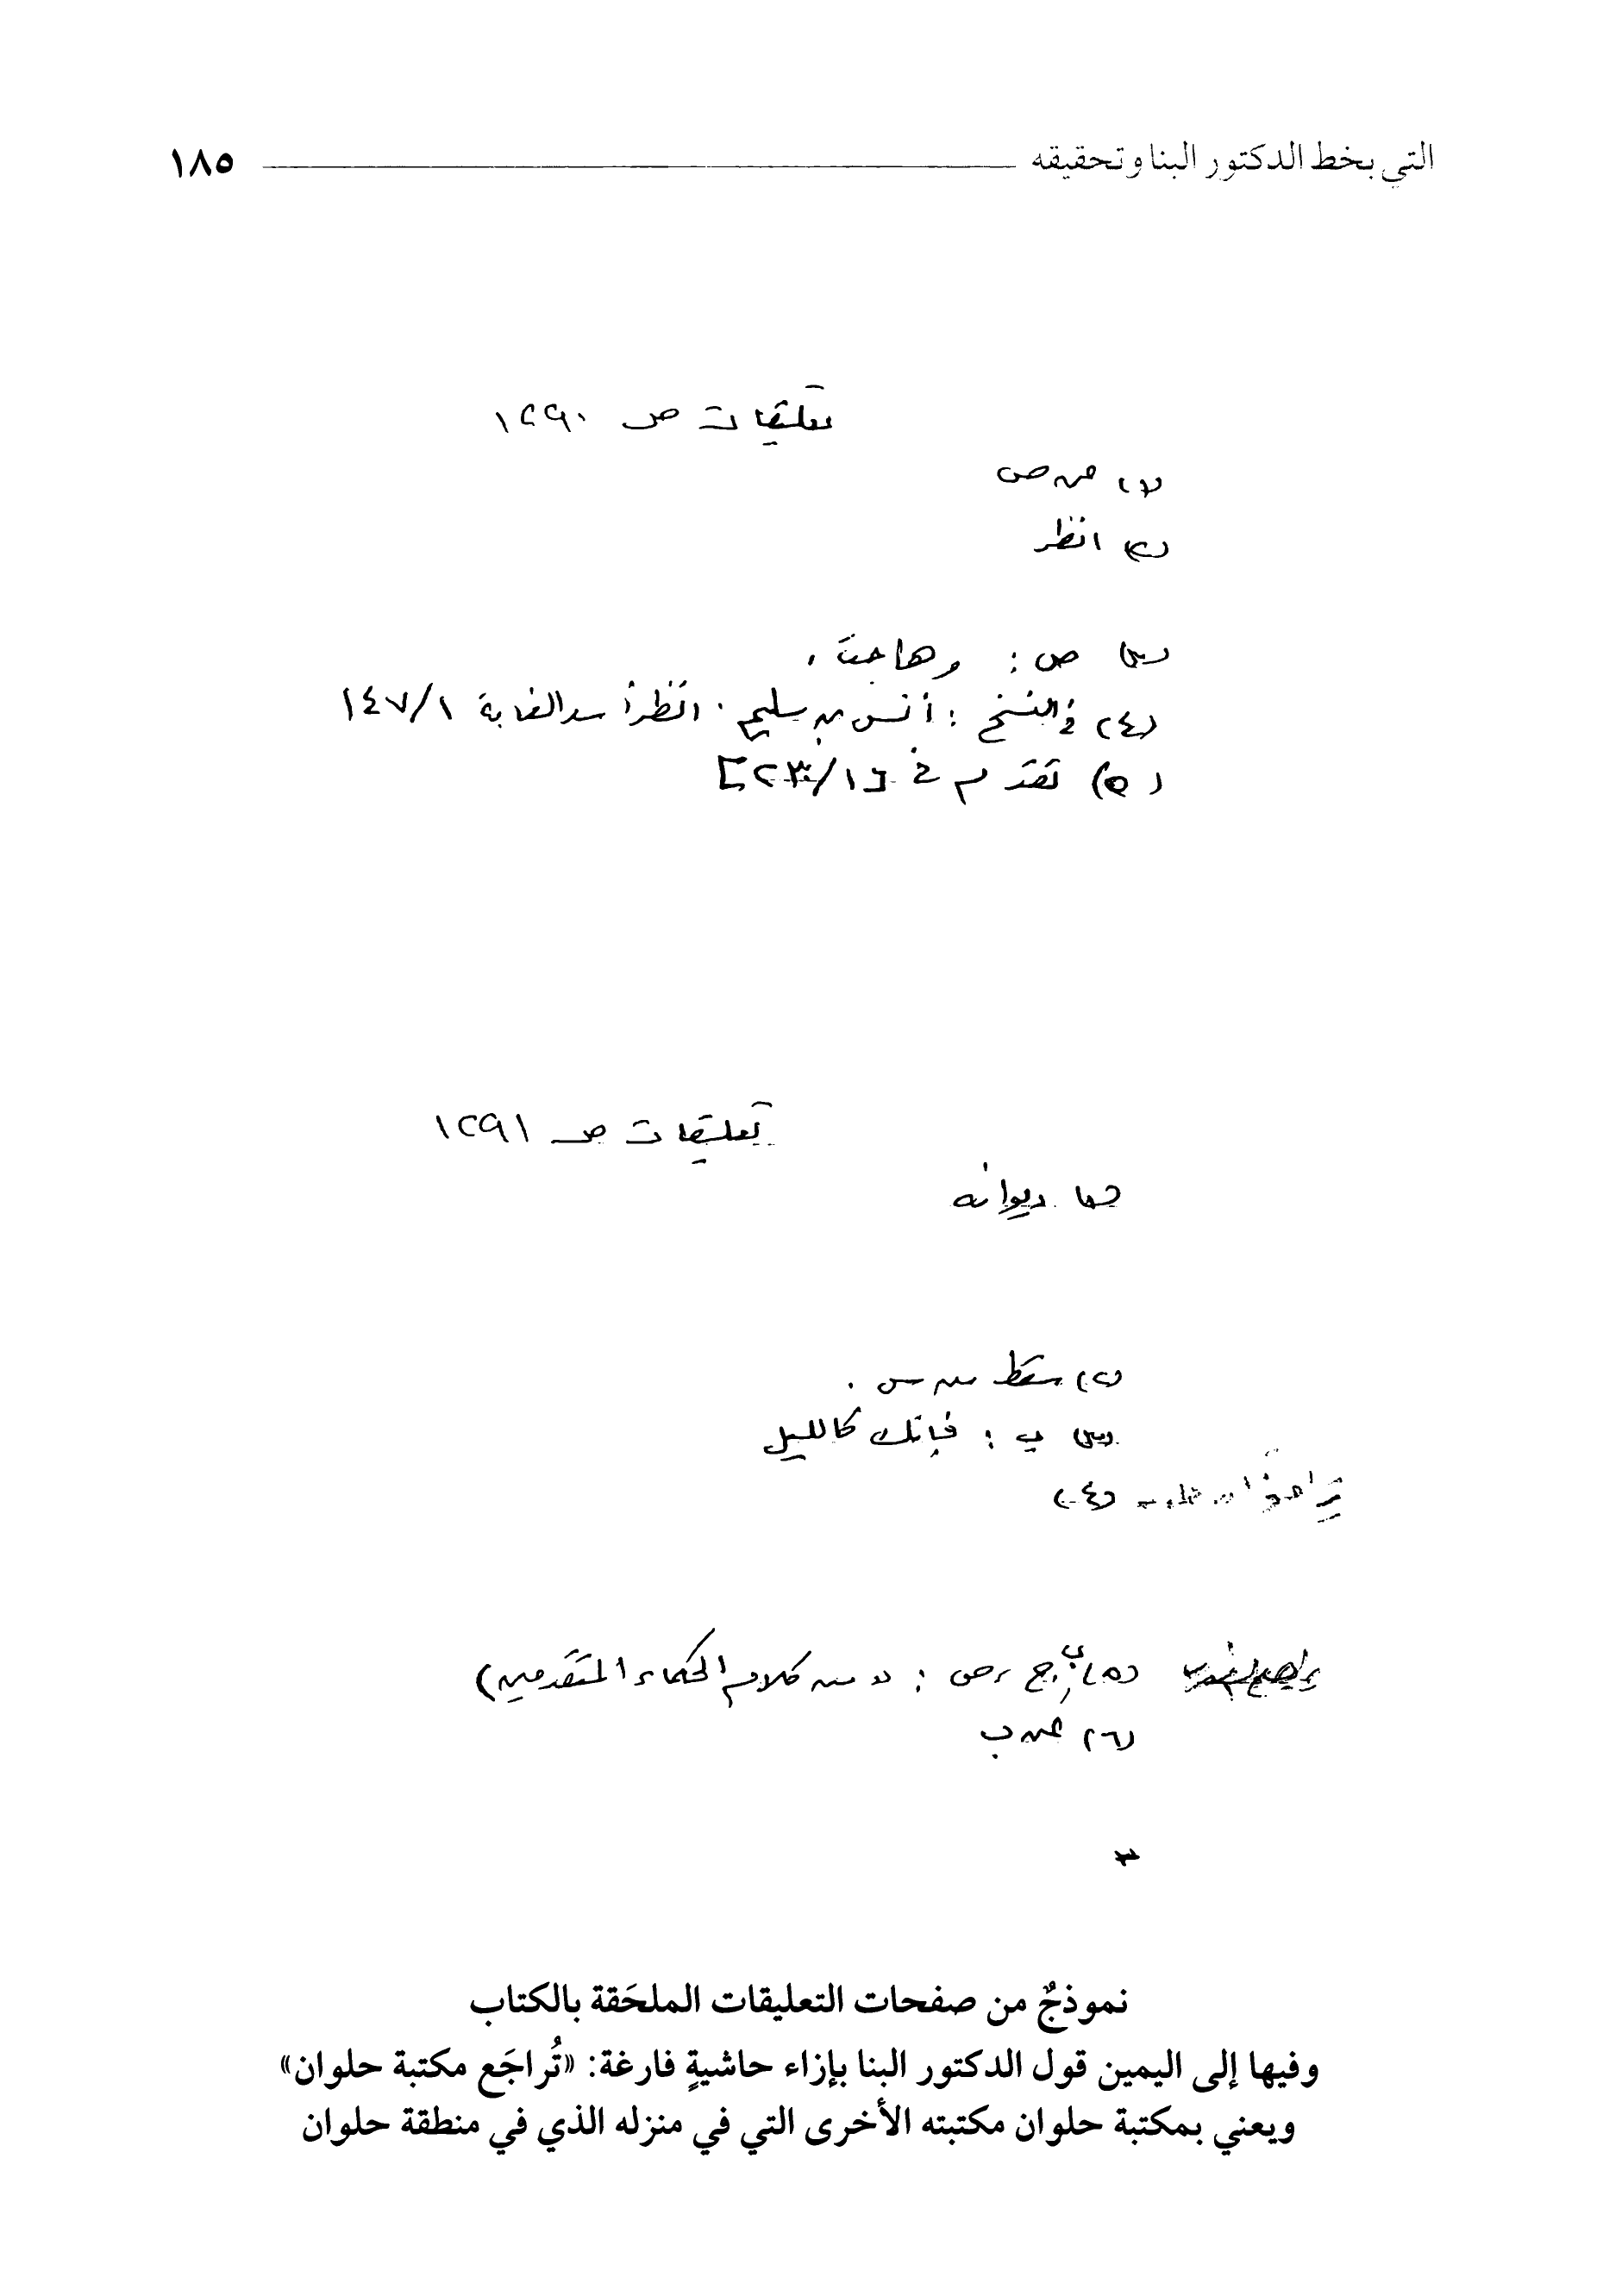 التي بخط الدكتور البنا وتحقيقه ١٨٥
تعليقات ص ١٢٩٠
(١) من ص
(٢) انظر
(٣) ص : وهاجت .
(٤) في النسخ : أنس بن سليم . انظر أسد الغابة ١٤٧/١
(٥) تقدم في [٢٣٠/١]
تعليقات ص ١٢٩١
ديوانه
(٢) سقط من س .
(٣) ب : فإنك كالليل
(٤)
(٥) ب، ج، ص : «من كلام الحكماء المتقدمين»
(٦) عن ب
نموذجٌ من صفحات التعليقات الملحَقة بالكتاب
وفيها إلى اليمين قول الدكتور البنا بإزاء حاشيةٍ فارغة: «تُراجَع مكتبة حلوان»
ويعني بمكتبة حلوان مكتبته الأخرى التي في منزله الذي في منطقة حلوان